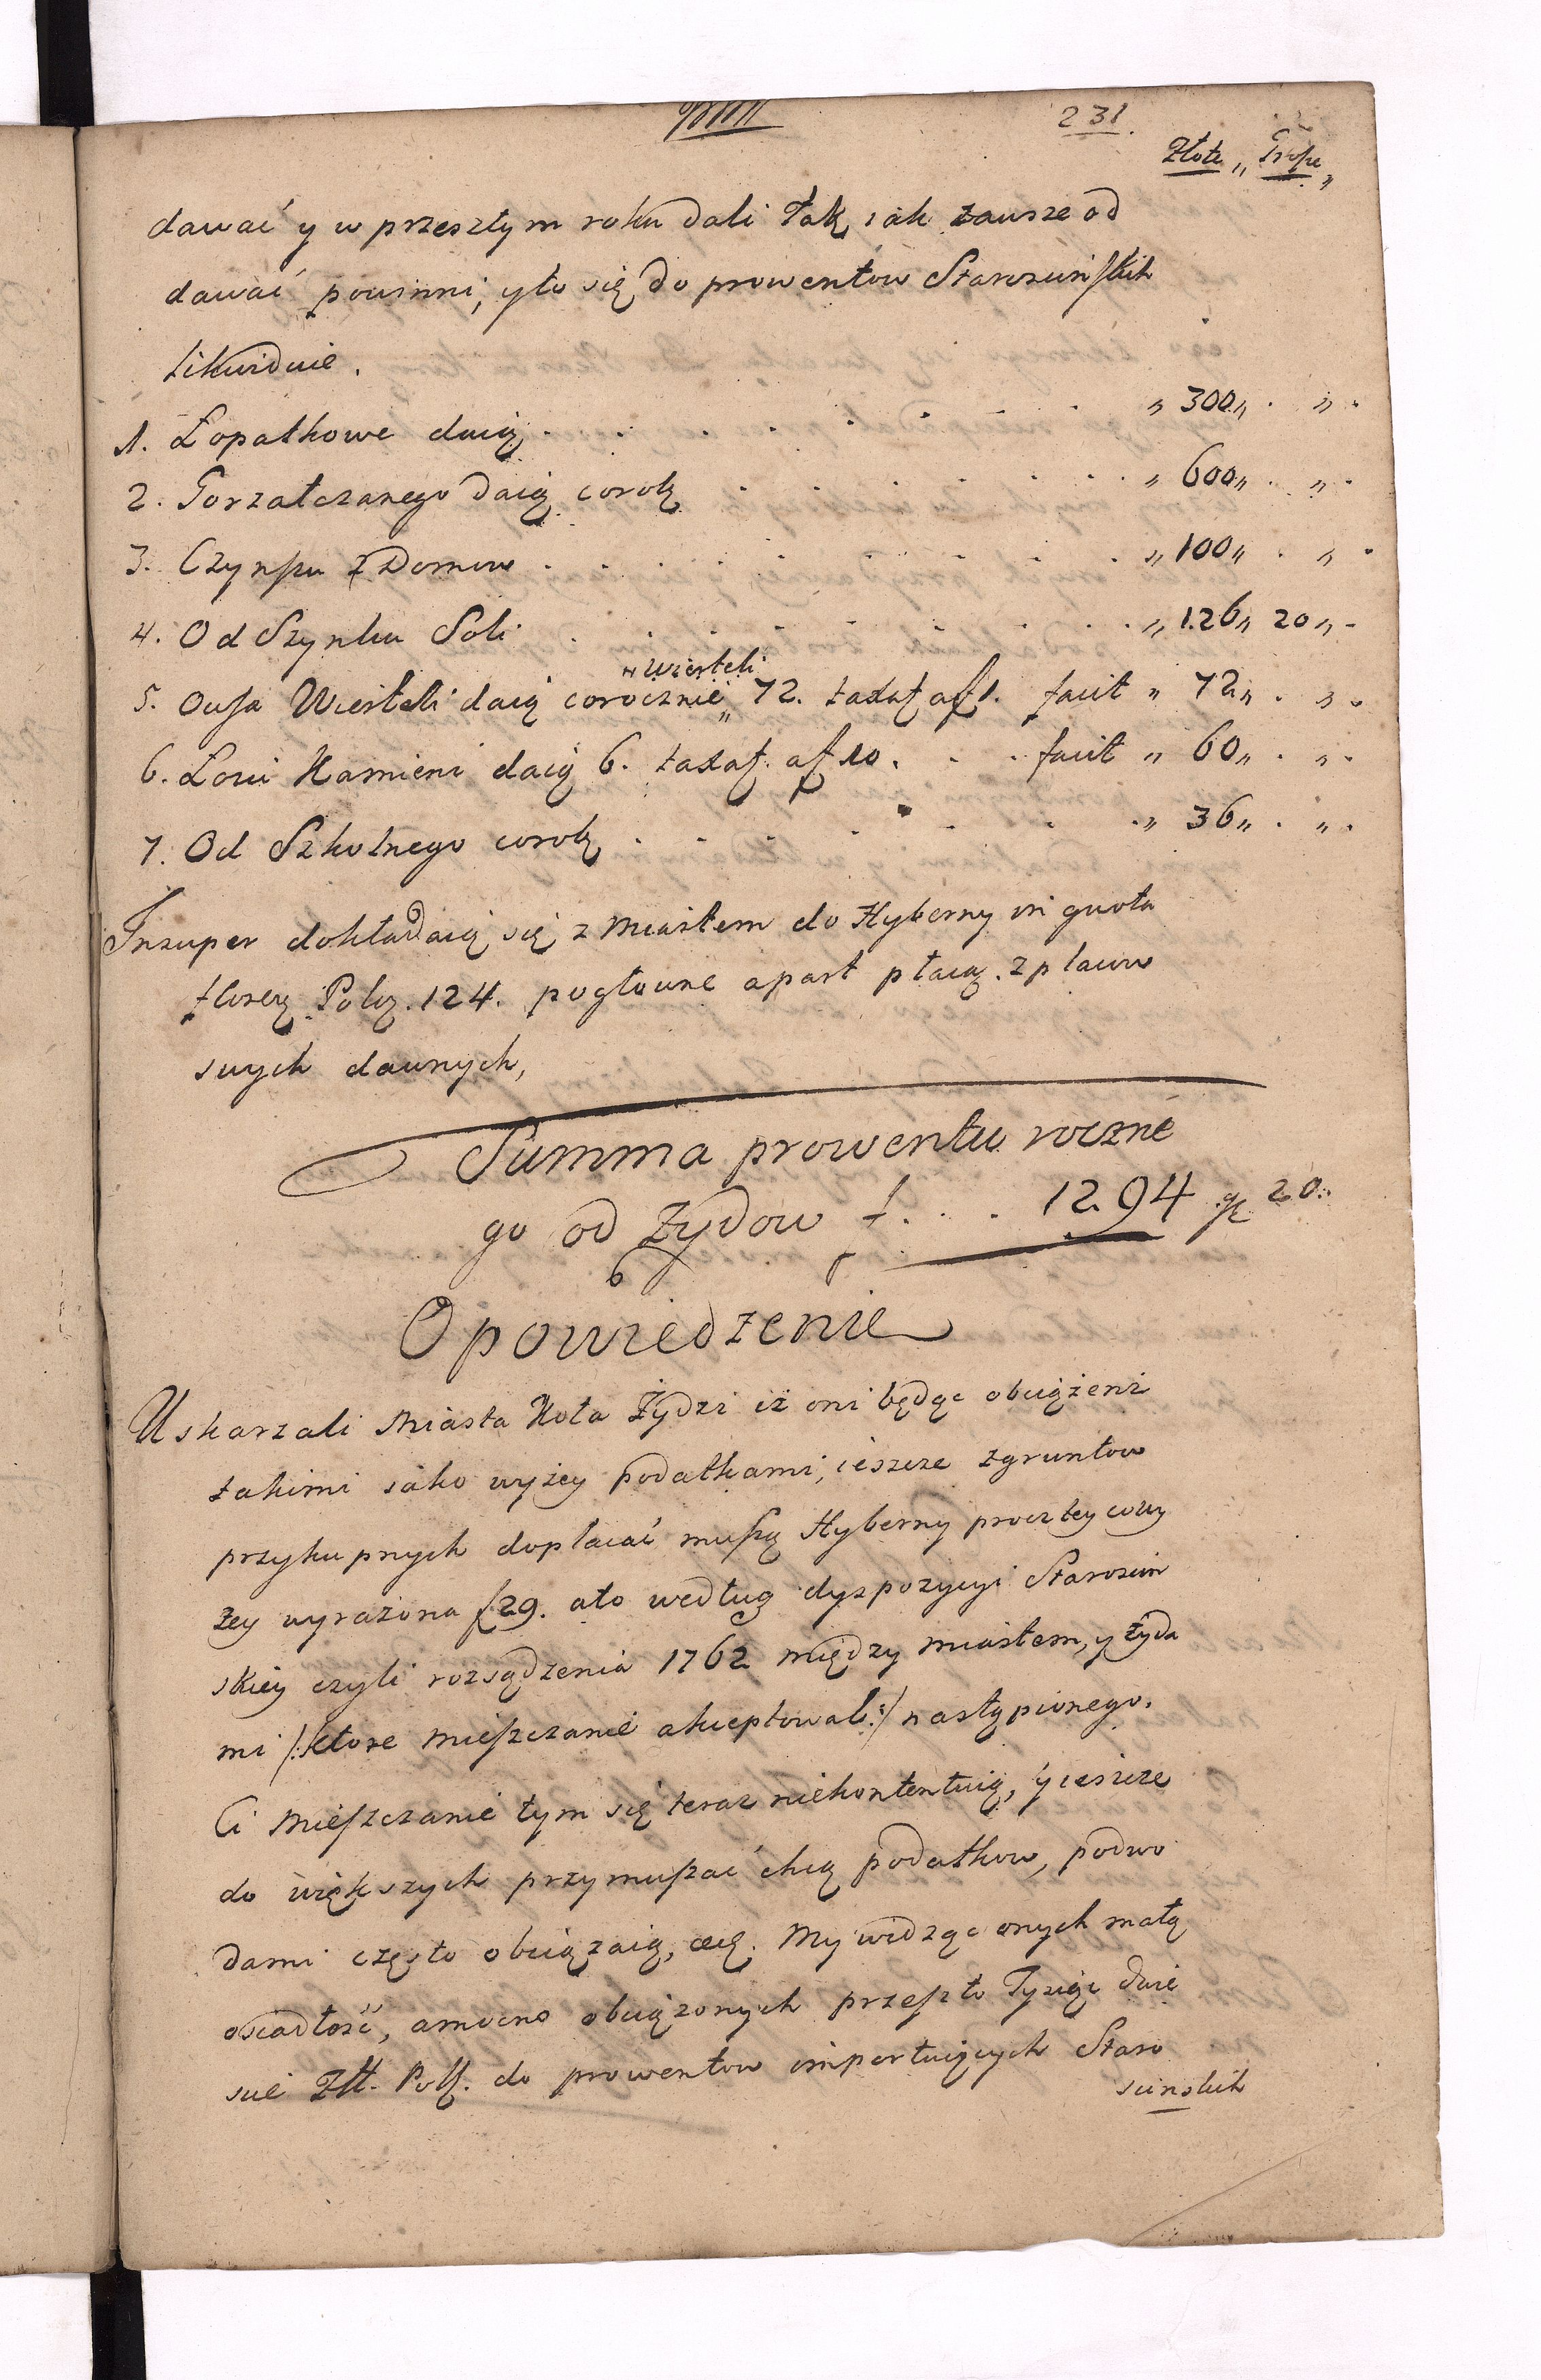 231.
Złote „ Grosze „
dawać y w przeszłym roku dali Tak iak zawsze od
dawać powinni, y to się do prowentow Starościńskich
likwiduie.
1. Łopatkowe daią . . . . . . . „ 300 „ . „ .
2. Gorzałczanego daią corok . . . . . . . „ 600 „ . „ .
3. Czynszu z Domow . . . . . . . „ 100 „ . „ .
4. Od Szynku Soli . . . . . . . „ 126 „ 20 „ .
wierteli
5. Owsa Wierteli daią corocznie „ 72. taxat. a f 1. facit „ 72 „ . „ .
6. Łoiu Kamieni daią 6. taxat. a f 10. . . facit „ 60 „ . „ .
7. Od Szkolnego corok . . . . . . . „ 36 „ . „ .
Insuper dokładaią się z Miastem do Hyberny in quota
floren. Pol. 124. pogłowne apart płacą z placow
swych dawnych,
Summa prowentu roczne
go od Żydow f . . . 1294 gr 20.
Opowiedzenie
Uskarzali Miasta Koła Żydzi iż oni będąc obciążeni
takimi iako wyżey podatkami, ieszcze z gruntow
przykupnych dopłacać muszą Hyberny procz tey co wy
żey wyrażona f 29. a to według dyspozycyi Starościn
skiey czyli rozsądzenia 1762 między miastem, y Żyda
mi /: ktore mieszczanie akceptowali :/ nastąpionego.
Ci Mieszczanie tym się teraz niekontentuią, y ieszcze
do większych przymuszać chcą podatkow, podwo
dami często obciążaią, etc. My widząc onych małą
osiadłość, a mocno obciążonych przeszło Tysiąc dwie
scie Złt. Pols. do prowentow importuiących Staro
scinskich